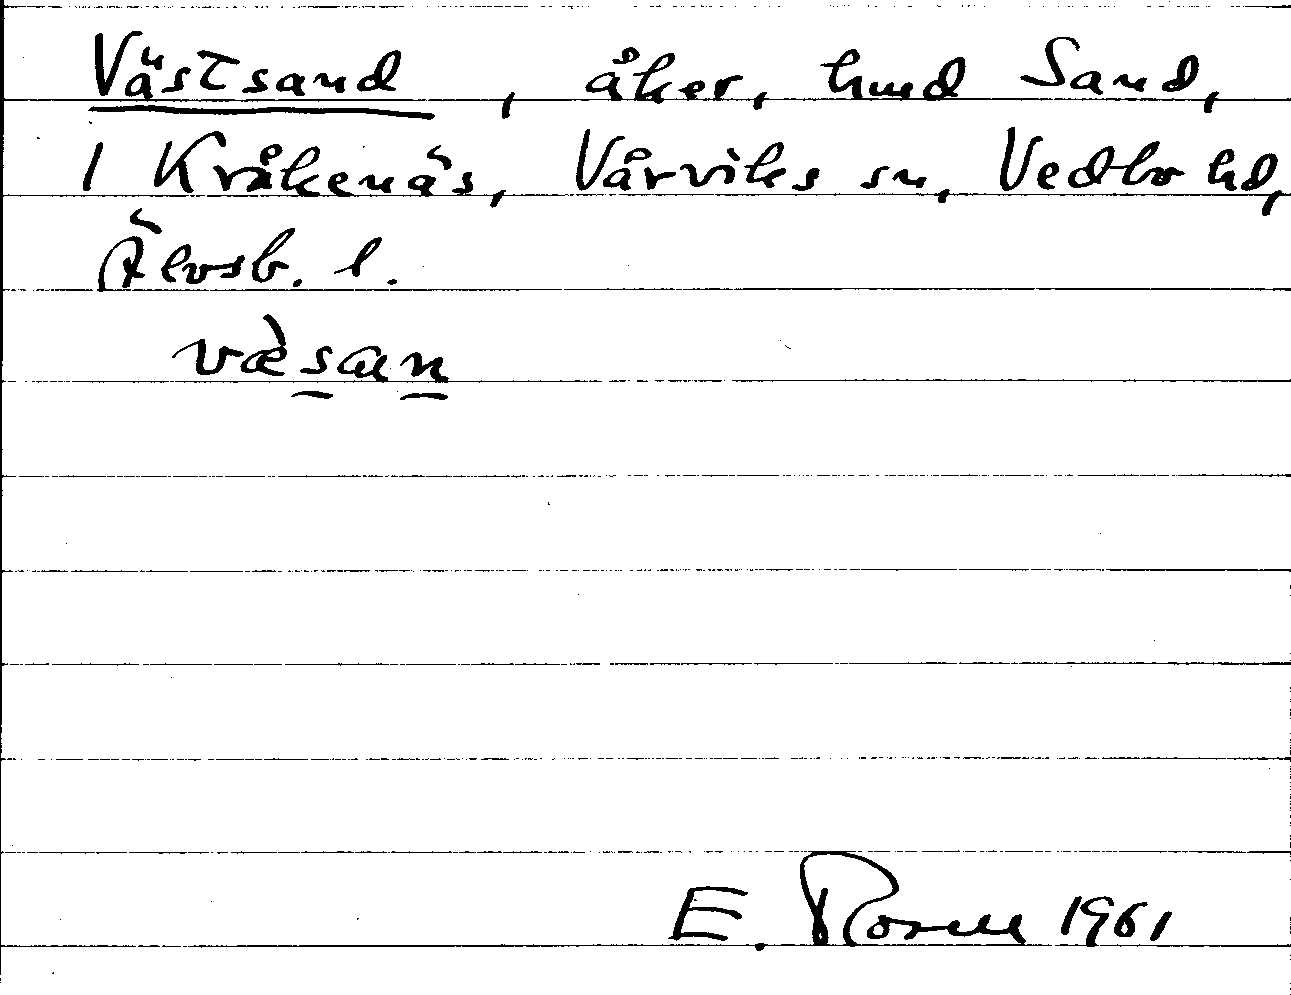 Västsand, åker, hmd Sand,
1 Kråkenäs, Vårviks sn, Vedbo hd,
Älvsb. l.
væ̀san
E. Rosell 1961